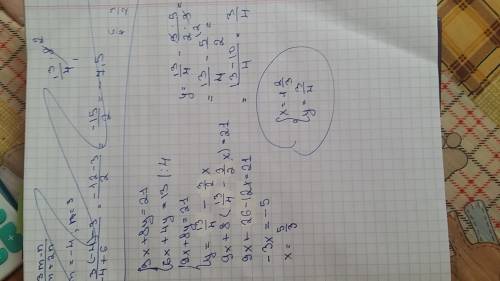 3m-n / m+2n
m=-4, n=3
3·(-4)-3 / -4+6 = -12-3 / 2 = -15/2 = -7,5
9x+8y=21
6x+4y=13 |:4
9x+8y=21
y=13/4 - 3/2 x
9x+8(13/4 - 3/2 x)=21
9x+26-12x=21
-3x=-5
x=5/3
y=13/4 - 3·5/2·3 =
=13/4 - 5/2 =
=13-10/4 = 3/4
x=1 2/3
y=3/4